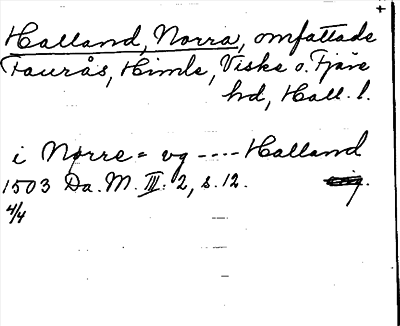 +
Halland, Norra, omfattade
Faurås, Himle, Viske o. Fjäre
hd, Hall. l.
i Nørre= og ---- Halland
1503 Da. M. III: 2, s. 12.
4/4